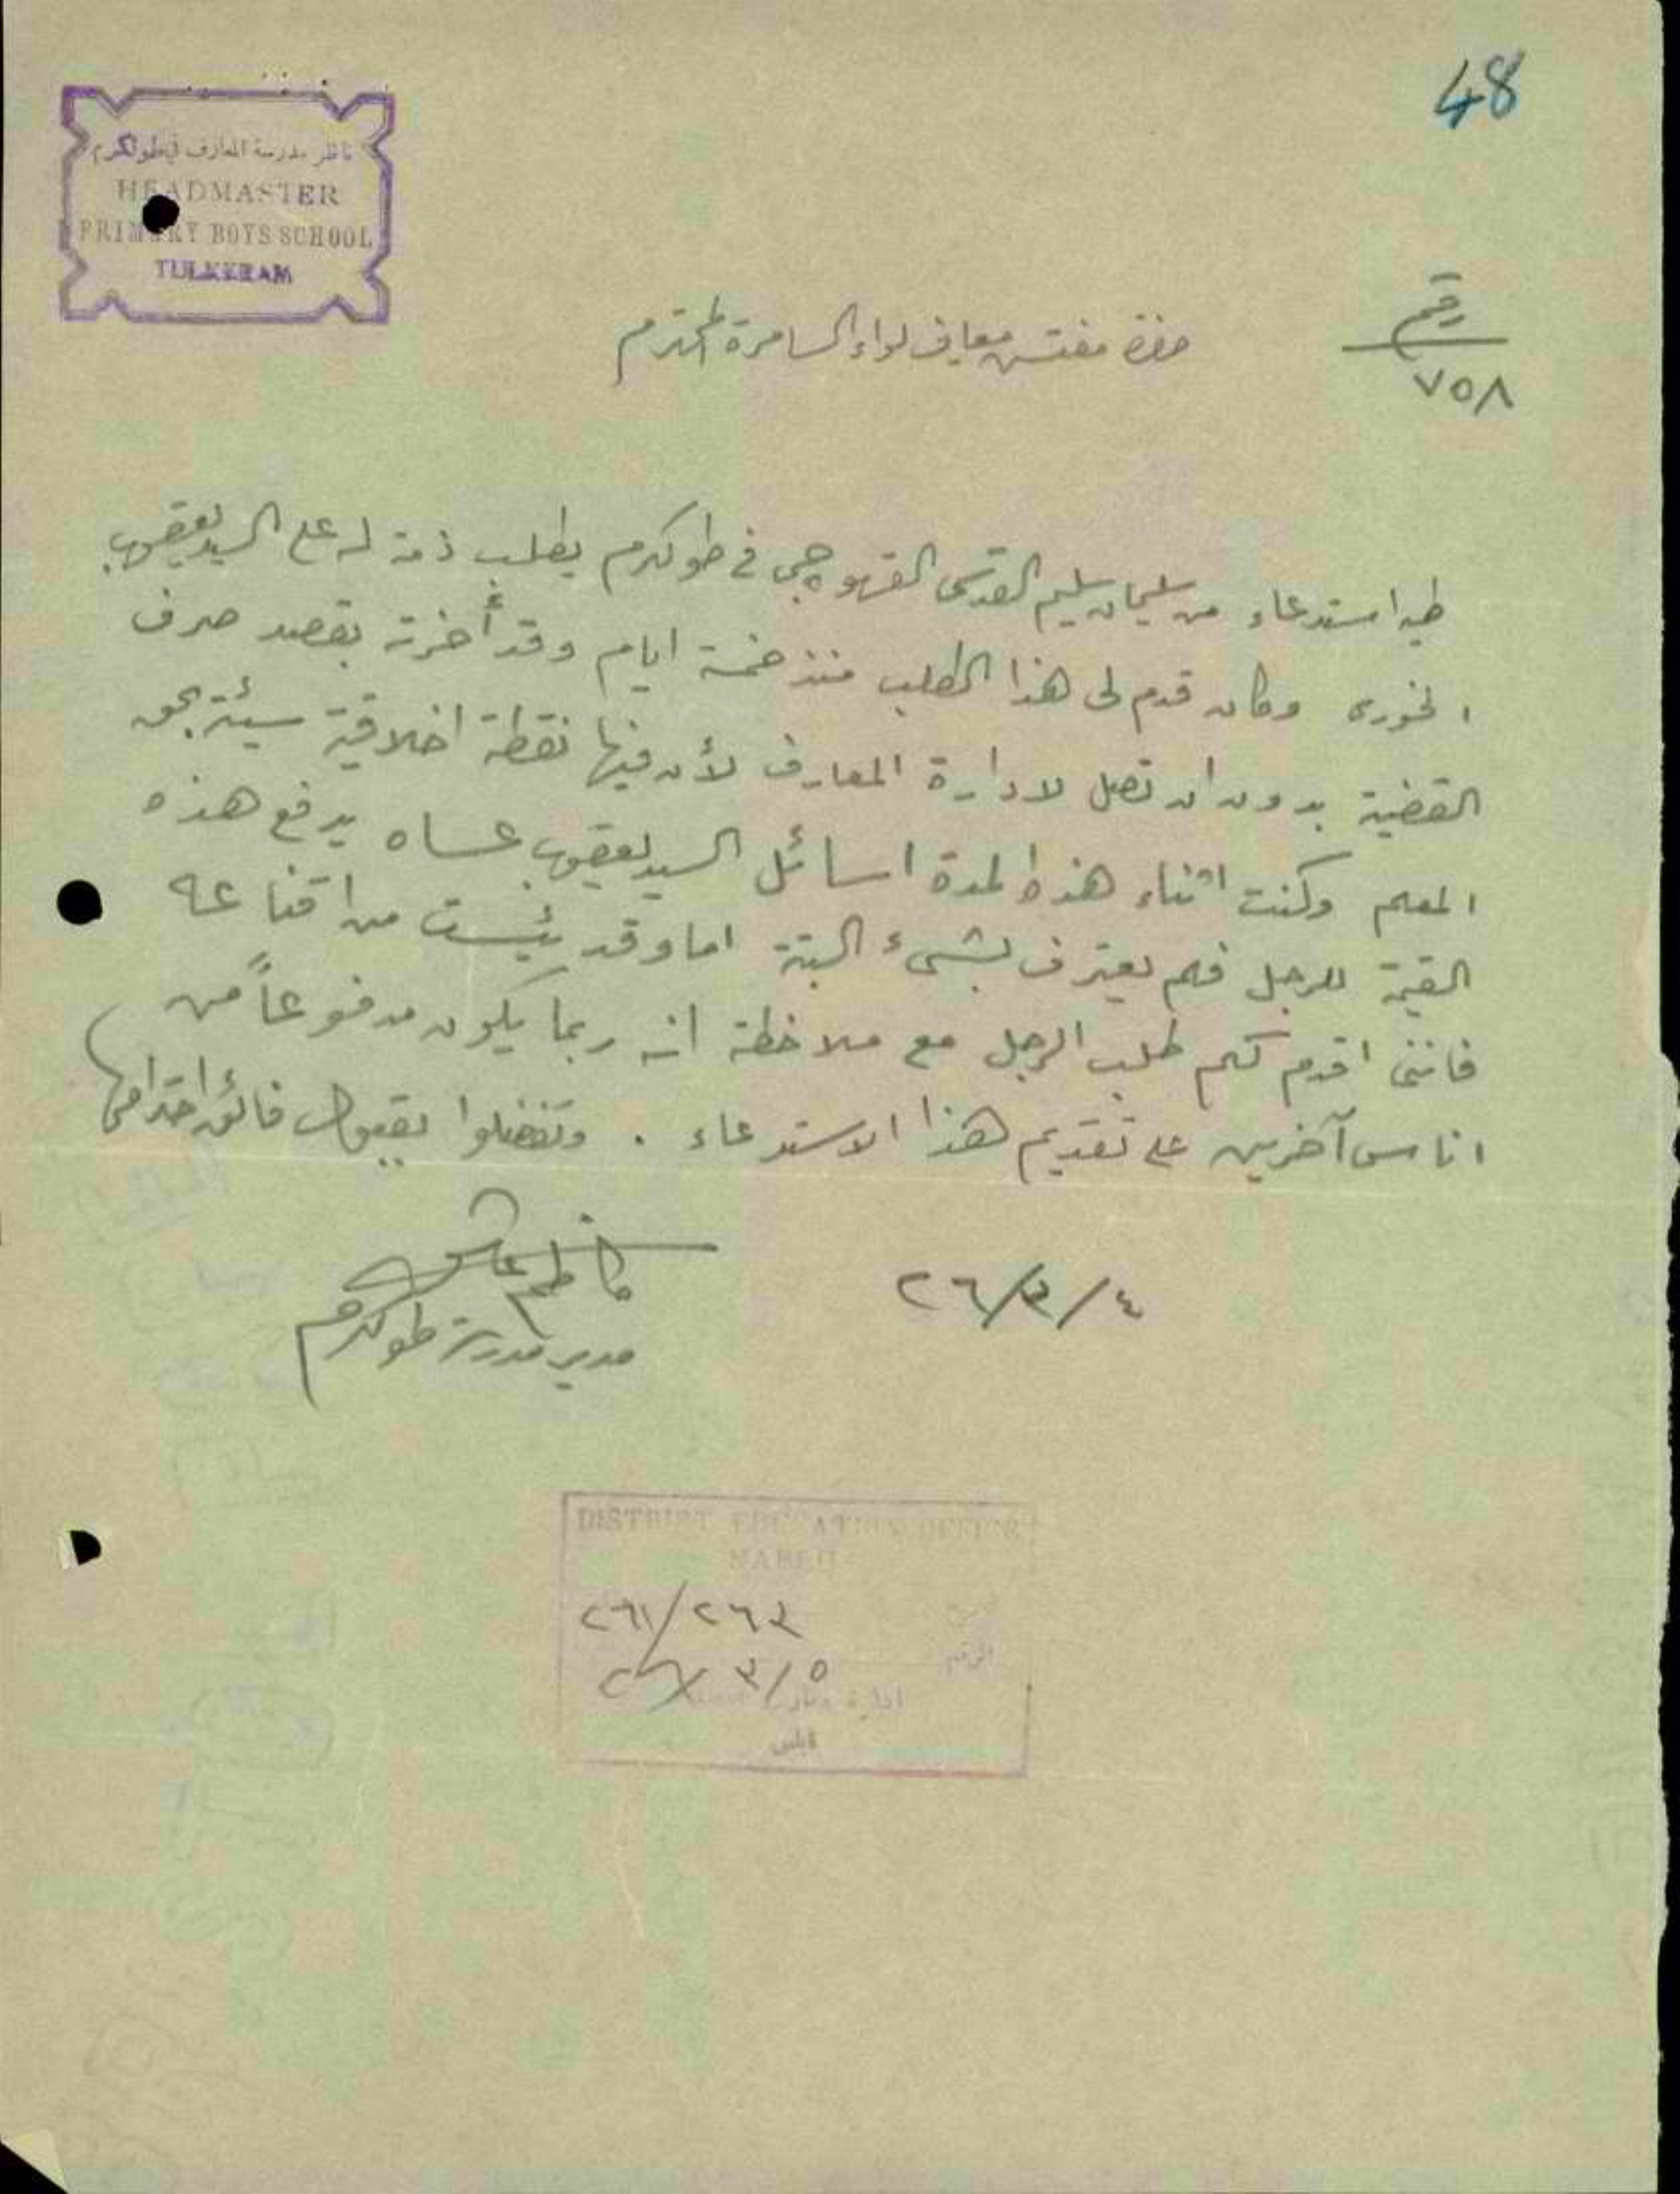 48
ناظر مدرسة المعارف في طولكرم
HEADMASTER
PRIMARY BOYS SCHOOL
TULKERAM
رقم
٧٥٨
حضرة مفتش معارف لواء السامرة المحترم
طيه استدعاء من سليمان سليم القدسي القهوجي في طولكرم يطلب ذمة له على السيد يعقوب
الخوري وكان قدم لي هذا الطلب منذ خمسة ايام وقد أخرته بقصد صرف
القضية بدون ان تصل لادارة المعارف لأن فيها نقطة اخلاقية سيئة بحق
المعلم وكنت اثناء هذه المدة اسائل السيد يعقوب عساه يدفع هذه
القيمة للرجل فلم يعترف بشيء البتة اما وقد يئست من اقناعه
فانني اقدم لكم طلب الرجل مع ملاحظة انه ربما يكون مدفوعاً من
اناس آخرين على تقديم هذا الاستدعاء . وتفضلوا بقبول فائق احترامي
٢٦/٣/٤
كاظم
مدير مدرسة طولكرم
DISTRICT EDUCATION OFFICE
٢٦١/٢٦٣
الرقم
٢٦/٣/٥
ادارة معارف
نابلس